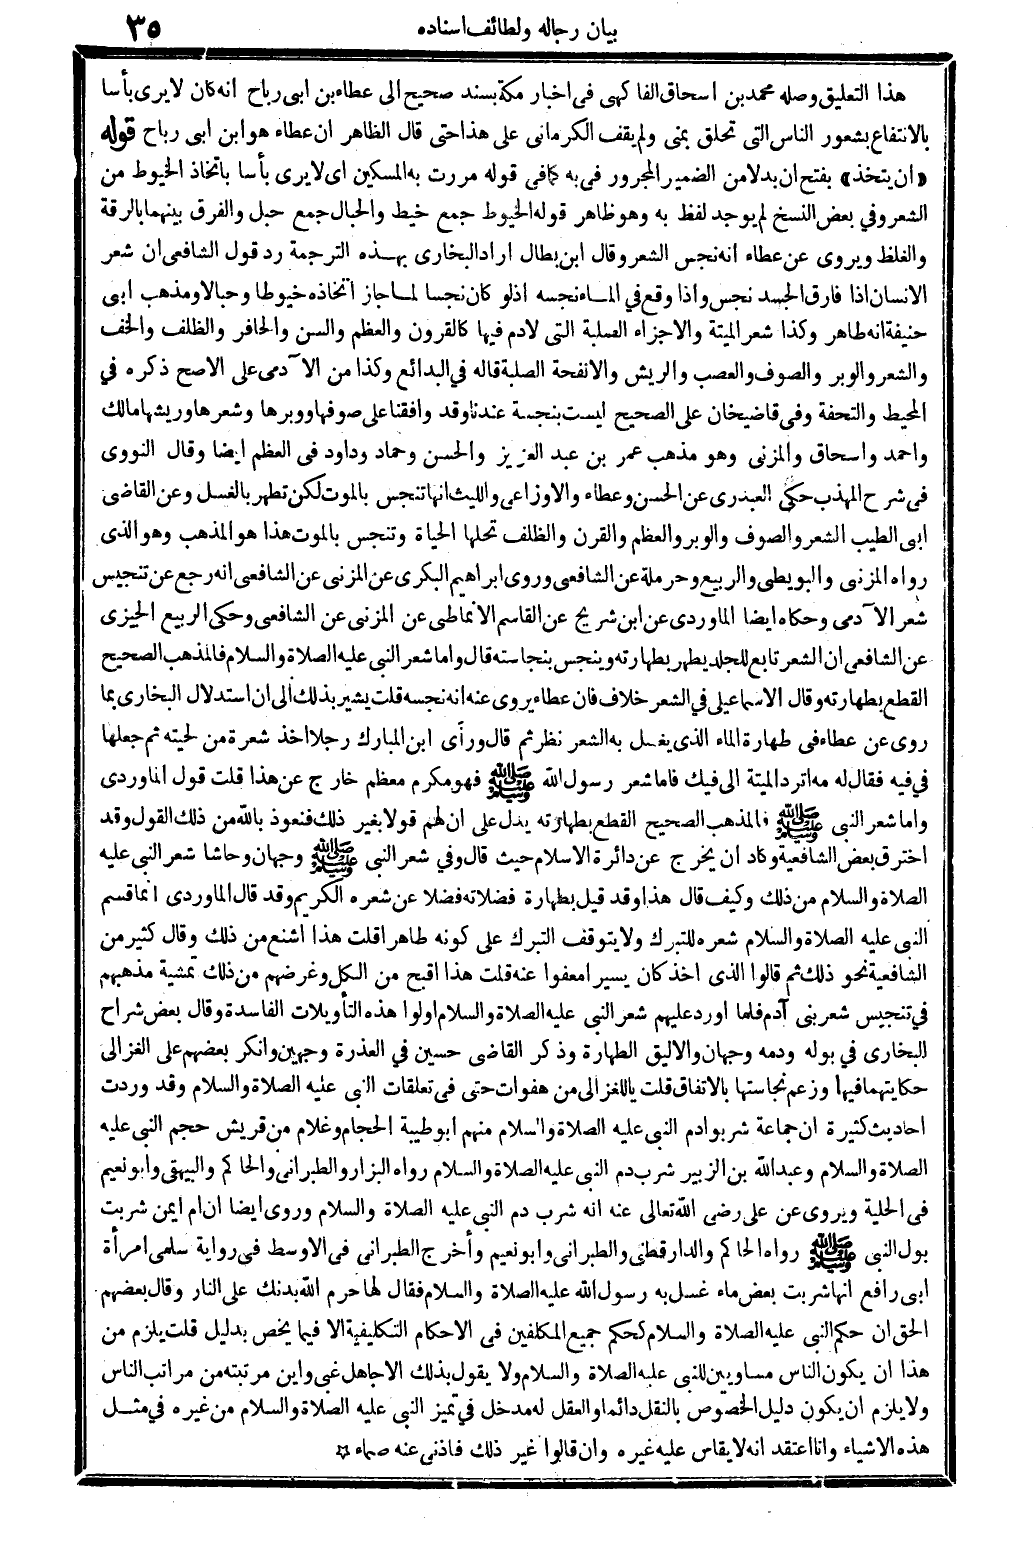 بيان رجاله ولطائف اسناده ٣٥
هذا التعليق وصله محمد بن اسحاق الفاكهى فى اخبار مكة بسند صحيح الى عطاء بن ابى رباح انه كان لا يرى بأسا
بالانتفاع بشعور الناس التى تحلق بمنى ولم يقف الكرمانى على هذا حتى قال الظاهر ان عطاء هو ابن ابى رباح قوله
«ان يتخذ» بفتح ان بدلا من الضمير المجرور فى به كما فى قوله مررت به المسكين اى لا يرى بأسا باتخاذ الخيوط من
الشعر وفي بعض النسخ لم يوجد لفظ به وهو ظاهر قوله الخيوط جمع خيط والحبال جمع حبل والفرق بينهما بالرقة
والغلظ ويروى عن عطاء انه نجس الشعر وقال ابن بطال اراد البخارى بهذه الترجمة رد قول الشافعى ان شعر
الانسان اذا فارق الجسد نجس واذا وقع في الماء نجسه اذلو كان نجسا لما جاز اتخاذه خيوطا وحبالا ومذهب ابى
حنيفة انه طاهر وكذا شعر الميتة والاجزاء الصلبة التى لادم فيها كالقرون والعظم والسن والحافر والظلف والخف
والشعر والوبر والصوف والعصب والريش والانفحة الصلبة قاله في البدائع وكذا من الآدمى على الاصح ذكره في
المحيط والتحفة وفى قاضيخان على الصحيح ليست بنجسة عندنا وقد وافقنا على صوفها ووبرها وشعرها وريشها مالك
واحمد واسحاق والمزنى وهو مذهب عمر بن عبد العزيز والحسن وحماد وداود فى العظم ايضا وقال النووى
فى شرح المهذب حكى العبدرى عن الحسن وعطاء والاوزاعى والليث انها تنجس بالموت لكن تطهر بالغسل وعن القاضى
ابى الطيب الشعر والصوف والوبر والعظم والقرن والظلف تحلها الحياة وتنجس بالموت هذا هو المذهب وهو الذى
رواه المزنى والبويطى والربيع وحرملة عن الشافعى وروى ابراهيم البكرى عن المزنى عن الشافعى انه رجع عن تنجيس
شعر الآدمى وحكاه ايضا الماوردى عن ابن شريح عن القاسم الانماطى عن المزنى عن الشافعى وحكى الربيع الجيزى
عن الشافعى ان الشعر تابع للجلد يطهر بطهارته وينجس بنجاسته قال واما شعر النبى عليه الصلاة والسلام فالمذهب الصحيح
القطع بطهارته وقال الاسماعيلى في الشعر خلاف فان عطاء يروى عنه انه نجسه قلت يشير بذلك الى ان استدلال البخارى بما
روى عن عطاء فى طهارة الماء الذى يغسل به الشعر نظر ثم قال ورأى ابن المبارك رجلا اخذ شعرة من لحيته ثم جعلها
في فيه فقال له مه اترد الميتة الى فيك فاما شعر رسول الله ﷺ فهو مكرم معظم خارج عن هذا قلت قول الماوردى
واما شعر النبى ﷺ فالمذهب الصحيح القطع بطهارته يدل على ان لهم قولا بغير ذلك فنعوذ بالله من ذلك القول وقد
اخترق بعض الشافعية وكاد ان يخرج عن دائرة الاسلام حيث قال وفي شعر النبى ﷺ وجهان وحاشا شعر النبى عليه
الصلاة والسلام من ذلك وكيف قال هذا وقد قيل بطهارة فضلاته فضلا عن شعره الكريم وقد قال الماوردى انما قسم
النبى عليه الصلاة والسلام شعره للتبرك ولا يتوقف التبرك على كونه طاهرا قلت هذا اشنع من ذلك وقال كثير من
الشافعية نحو ذلك ثم قالوا الذى اخذ كان يسيرا معفوا عنه قلت هذا اقبح من الكل وغرضهم من ذلك تمشية مذهبهم
في تنجيس شعر بنى آدم فلما اورد عليهم شعر النبى عليه الصلاة والسلام اولوا هذه التأويلات الفاسدة وقال بعض شراح
البخارى في بوله ودمه وجهان والاليق الطهارة وذكر القاضى حسين في العذرة وجهين وانكر بعضهم على الغزالى
حكايتهما فيها وزعم نجاستها بالاتفاق قلت ياللغزالى من هفوات حتى فى تعلقات النبى عليه الصلاة والسلام وقد وردت
احاديث كثيرة ان جماعة شربوا دم النبى عليه الصلاة والسلام منهم ابو طيبة الحجام وغلام من قريش حجم النبى عليه
الصلاة والسلام وعبد الله بن الزبير شرب دم النبى عليه الصلاة والسلام رواه البزار والطبرانى والحاكم والبيهقى وابو نعيم
فى الحلية ويروى عن على رضى الله تعالى عنه انه شرب دم النبى عليه الصلاة والسلام وروى ايضا ان ام ايمن شربت
بول النبى ﷺ رواه الحاكم والدار قطنى والطبرانى وابو نعيم وأخرج الطبرانى فى الاوسط في رواية سلمى امرأة
ابى رافع انها شربت بعض ماء غسل به رسول الله عليه الصلاة والسلام فقال لها حرم الله بدنك على النار وقال بعضهم
الحق ان حكم النبى عليه الصلاة والسلام كحكم جميع المكلفين فى الاحكام التكليفية الا فيما يخص بدليل قلت يلزم من
هذا ان يكون الناس مساويين للنبى عليه الصلاة والسلام ولا يقول بذلك الا جاهل غبى واين مرتبته من مراتب الناس
ولا يلزم ان يكون دليل الخصوص بالنقل دائما والعقل له مدخل في تميز النبى عليه الصلاة والسلام من غيره في مثل
هذه الاشياء وانا اعتقد انه لا يقاس عليه غيره وان قالوا غير ذلك فاذنى عنه صماء ✡